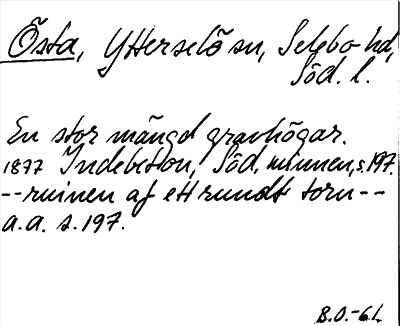 Östa, Ytterselö sn, Selebo hd,
Söd. l.
En stor mängd gravhögar.
1877 Indebetou, Söd. minnen, s. 197.
--ruinen af ett rundt torn--
a.a. s. 197.
B.O.-61.